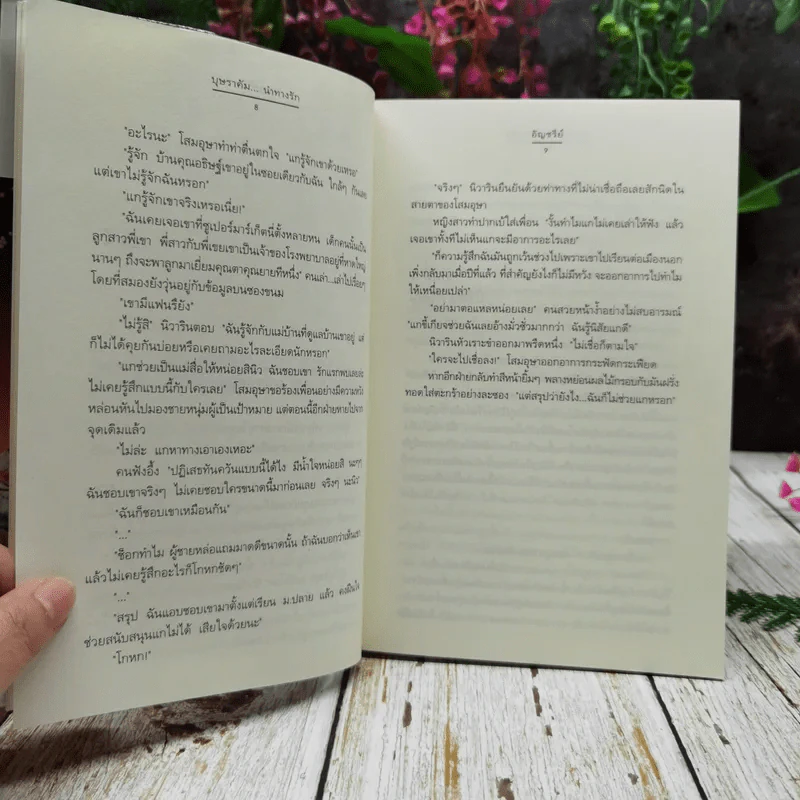 บุษราคัม... นำทางรัก
8
"อะไรนะ" โสมอุษาทำท่าตื่นตกใจ "แกรู้จักเขาด้วยเหรอ"
"รู้จัก บ้านคุณอธิษฐ์เขาอยู่ในซอยเดียวกับฉัน ใกล้ๆ กันเลย
แต่เขาไม่รู้จักฉันหรอก"
"แกรู้จักเขาจริงเหรอเนี่ย!"
"ฉันเคยเจอเขาที่ซูเปอร์มาร์เก็ตนี่ตั้งหลายหน เด็กคนนั้นเป็น
ลูกสาวพี่เขา พี่สาวกับพี่เขยเขาเป็นเจ้าของโรงพยาบาลอยู่ที่หาดใหญ่
นานๆ ถึงจะพาลูกมาเยี่ยมคุณตาคุณยายทีหนึ่ง" คนเล่า...เล่าไปเรื่อยๆ
โดยที่สมองยังวุ่นอยู่กับข้อมูลบนซองขนม
"เขามีแฟนรึยัง"
"ไม่รู้สิ" นิวารินตอบ "ฉันรู้จักกับแม่บ้านที่ดูแลบ้านเขาอยู่ แต่
ก็ไม่ได้คุยกันบ่อยหรือเคยถามอะไรละเอียดนักหรอก"
"แกช่วยเป็นแม่สื่อให้หน่อยสินิว ฉันชอบเขา รักแรกพบเลยล่ะ
ไม่เคยรู้สึกแบบนี้กับใครเลย" โสมอุษาขอร้องเพื่อนอย่างมีความหวัง
หล่อนหันไปมองชายหนุ่มผู้เป็นเป้าหมาย แต่ตอนนี้อีกฝ่ายหายไปจาก
จุดเดิมแล้ว
"ไม่ล่ะ แกหาทางเอาเองเหอะ"
คนฟังอึ้ง "ปฏิเสธทันควันแบบนี้ได้ไง มีน้ำใจหน่อยสิ นะๆๆ
ฉันชอบเขาจริงๆ ไม่เคยชอบใครขนาดนี้มาก่อนเลย จริงๆ นะนิว"
"ฉันก็ชอบเขาเหมือนกัน"
"..."
"ช็อกทำไม ผู้ชายหล่อแถมมาดดีขนาดนั้น ถ้าฉันบอกว่าเห็นเขา
แล้วไม่เคยรู้สึกอะไรก็โกหกชัดๆ"
"..."
"สรุป ฉันแอบชอบเขามาตั้งแต่เรียน ม.ปลาย แล้ว คงฝืนใจ
ช่วยสนับสนุนแกไม่ได้ เสียใจด้วยนะ"
"โกหก!"
อัญชรีย์
9
"จริงๆ" นิวารินยืนยันด้วยท่าทางที่ไม่น่าเชื่อถือเลยสักนิดใน
สายตาของโสมอุษา
หญิงสาวทำปากเบ้ใส่เพื่อน "งั้นทำไมแกไม่เคยเล่าให้ฟัง แล้ว
เจอเขาทั้งทีไม่เห็นแกจะมีอาการอะไรเลย"
"ก็ความรู้สึกฉันมันถูกเว้นช่วงไปเพราะเขาไปเรียนต่อเมืองนอก
เพิ่งกลับมาเมื่อปีที่แล้ว ที่สำคัญยังไงก็ไม่มีหวัง จะออกอาการไปทำไม
ให้เหนื่อยเปล่า"
"อย่ามาตอแหลหน่อยเลย" คนสวยหน้าง้ำอย่างไม่สบอารมณ์
"แกขี้เกียจช่วยฉันเลยอ้างมั่วซั่วมากกว่า ฉันรู้นิสัยแกดี"
นิวารินหัวเราะขำออกมาพรืดหนึ่ง "ไม่เชื่อก็ตามใจ"
"ใครจะไปเชื่อลง!" โสมอุษาออกอาการกระฟัดกระเฟียด
หากอีกฝ่ายกลับทำสีหน้ายิ้มๆ พลางหย่อนผลไม้กรอบกับมันฝรั่ง
ทอดใส่ตะกร้าอย่างละซอง "แต่สรุปว่ายังไง...ฉันก็ไม่ช่วยแกหรอก"